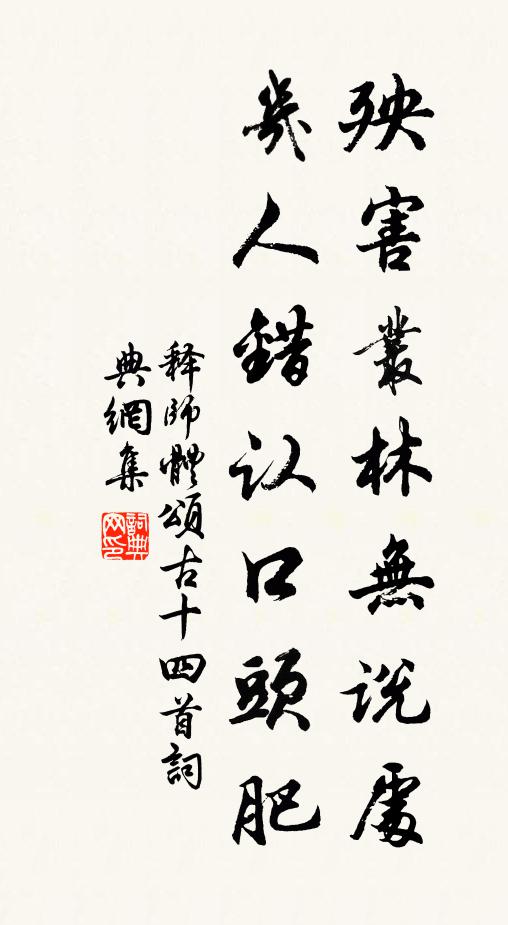 殃害叢林無説處
幾人錯认口頭肥
释師體頌古十四首詞
典網集
詞典
网印